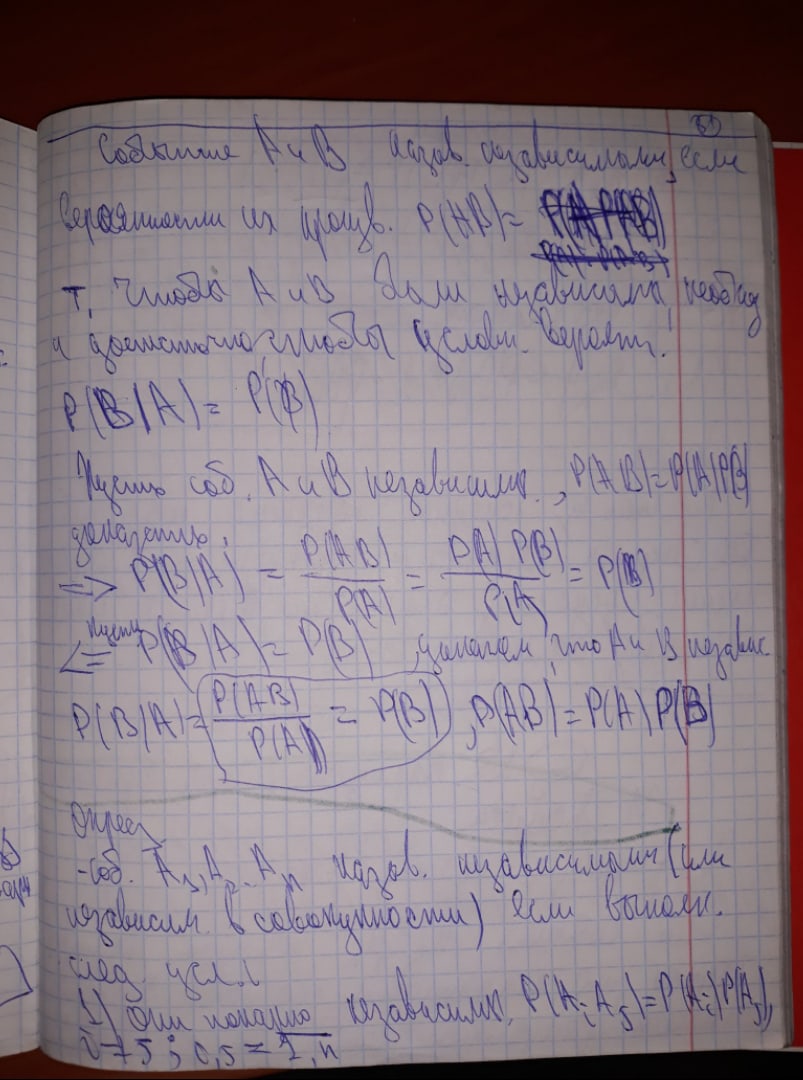 51
События А и В назов. независимыми, если
вероятности их произв. P(AB)=
т, чтобы А и В были независимы, необход
и достаточно, чтобы условн. вероятн.:
P(B|A)= P(B)
Пусть соб. А и В независимы, P(AB)=P(A)P(B)
доказать:
=> P(B|A) = P(AB)/P(A) = P(A) P(B)/P(A) = P(B)
<= пусть P(B|A)= P(B) , докажем, что А и В независ
P(B|A)= P(AB)/P(A) = P(B) , P(AB)=P(A)P(B)
Опред
-соб. A₁,A₂..Aₙ назов. независимыми (или
независим. в совокупности) если выполн.
след. усл.:
1) Они попарно независимы, P(AᵢAⱼ)=P(Aᵢ)P(Aⱼ),
i≠j; i,j = 1,n